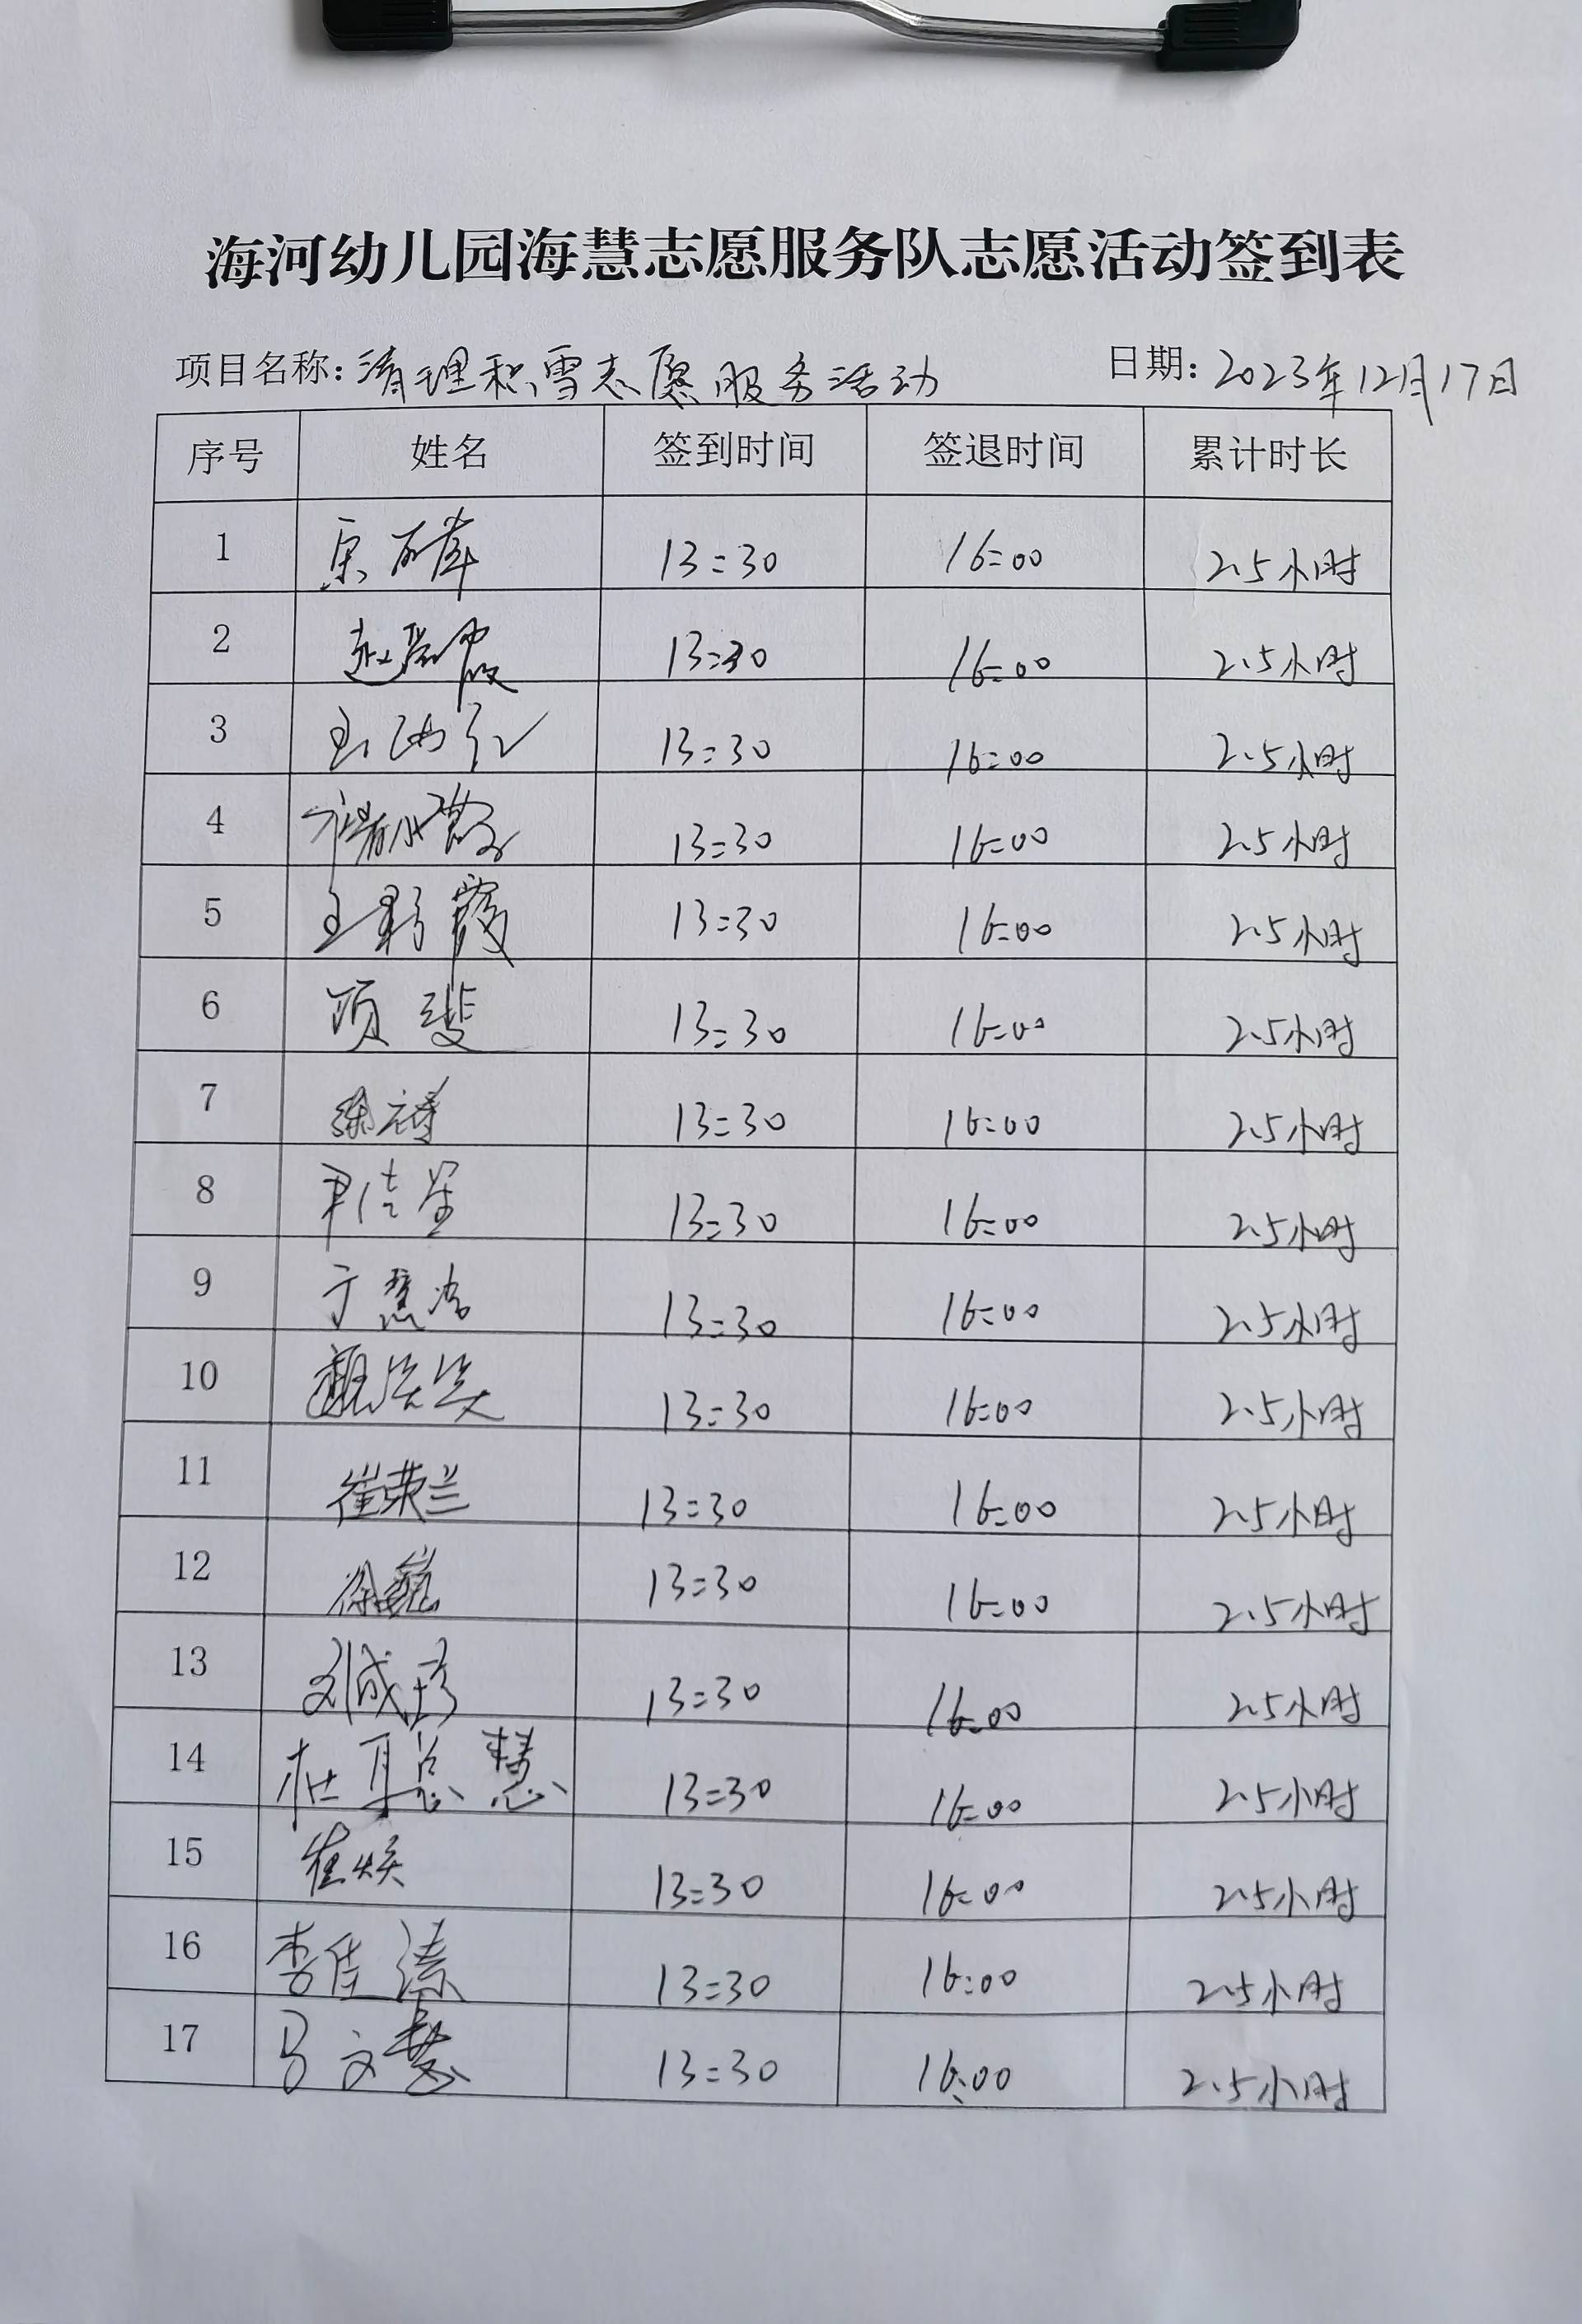 海河幼儿园海慧志愿服务队志愿活动签到表
项目名称：清理积雪志愿服务活动 日期：2023年12月17日
序号 姓名 签到时间 签退时间 累计时长
1 13:30 16:00 2.5小时
2 13:30 16:00 2.5小时
3 13:30 16:00 2.5小时
4 13:30 16:00 2.5小时
5 王彩霞 13:30 16:00 2.5小时
6 项斐 13:30 16:00 2.5小时
7 13:30 16:00 2.5小时
8 尹佳星 13:30 16:00 2.5小时
9 于慧洁 13:30 16:00 2.5小时
10 13:30 16:00 2.5小时
11 崔荣兰 13:30 16:00 2.5小时
12 徐巍 13:30 16:00 2.5小时
13 刘成珍 13:30 16:00 2.5小时
14 杜聪慧 13:30 16:00 2.5小时
15 崔焕 13:30 16:00 2.5小时
16 李佳溱 13:30 16:00 2.5小时
17 马文慧 13:30 16:00 2.5小时